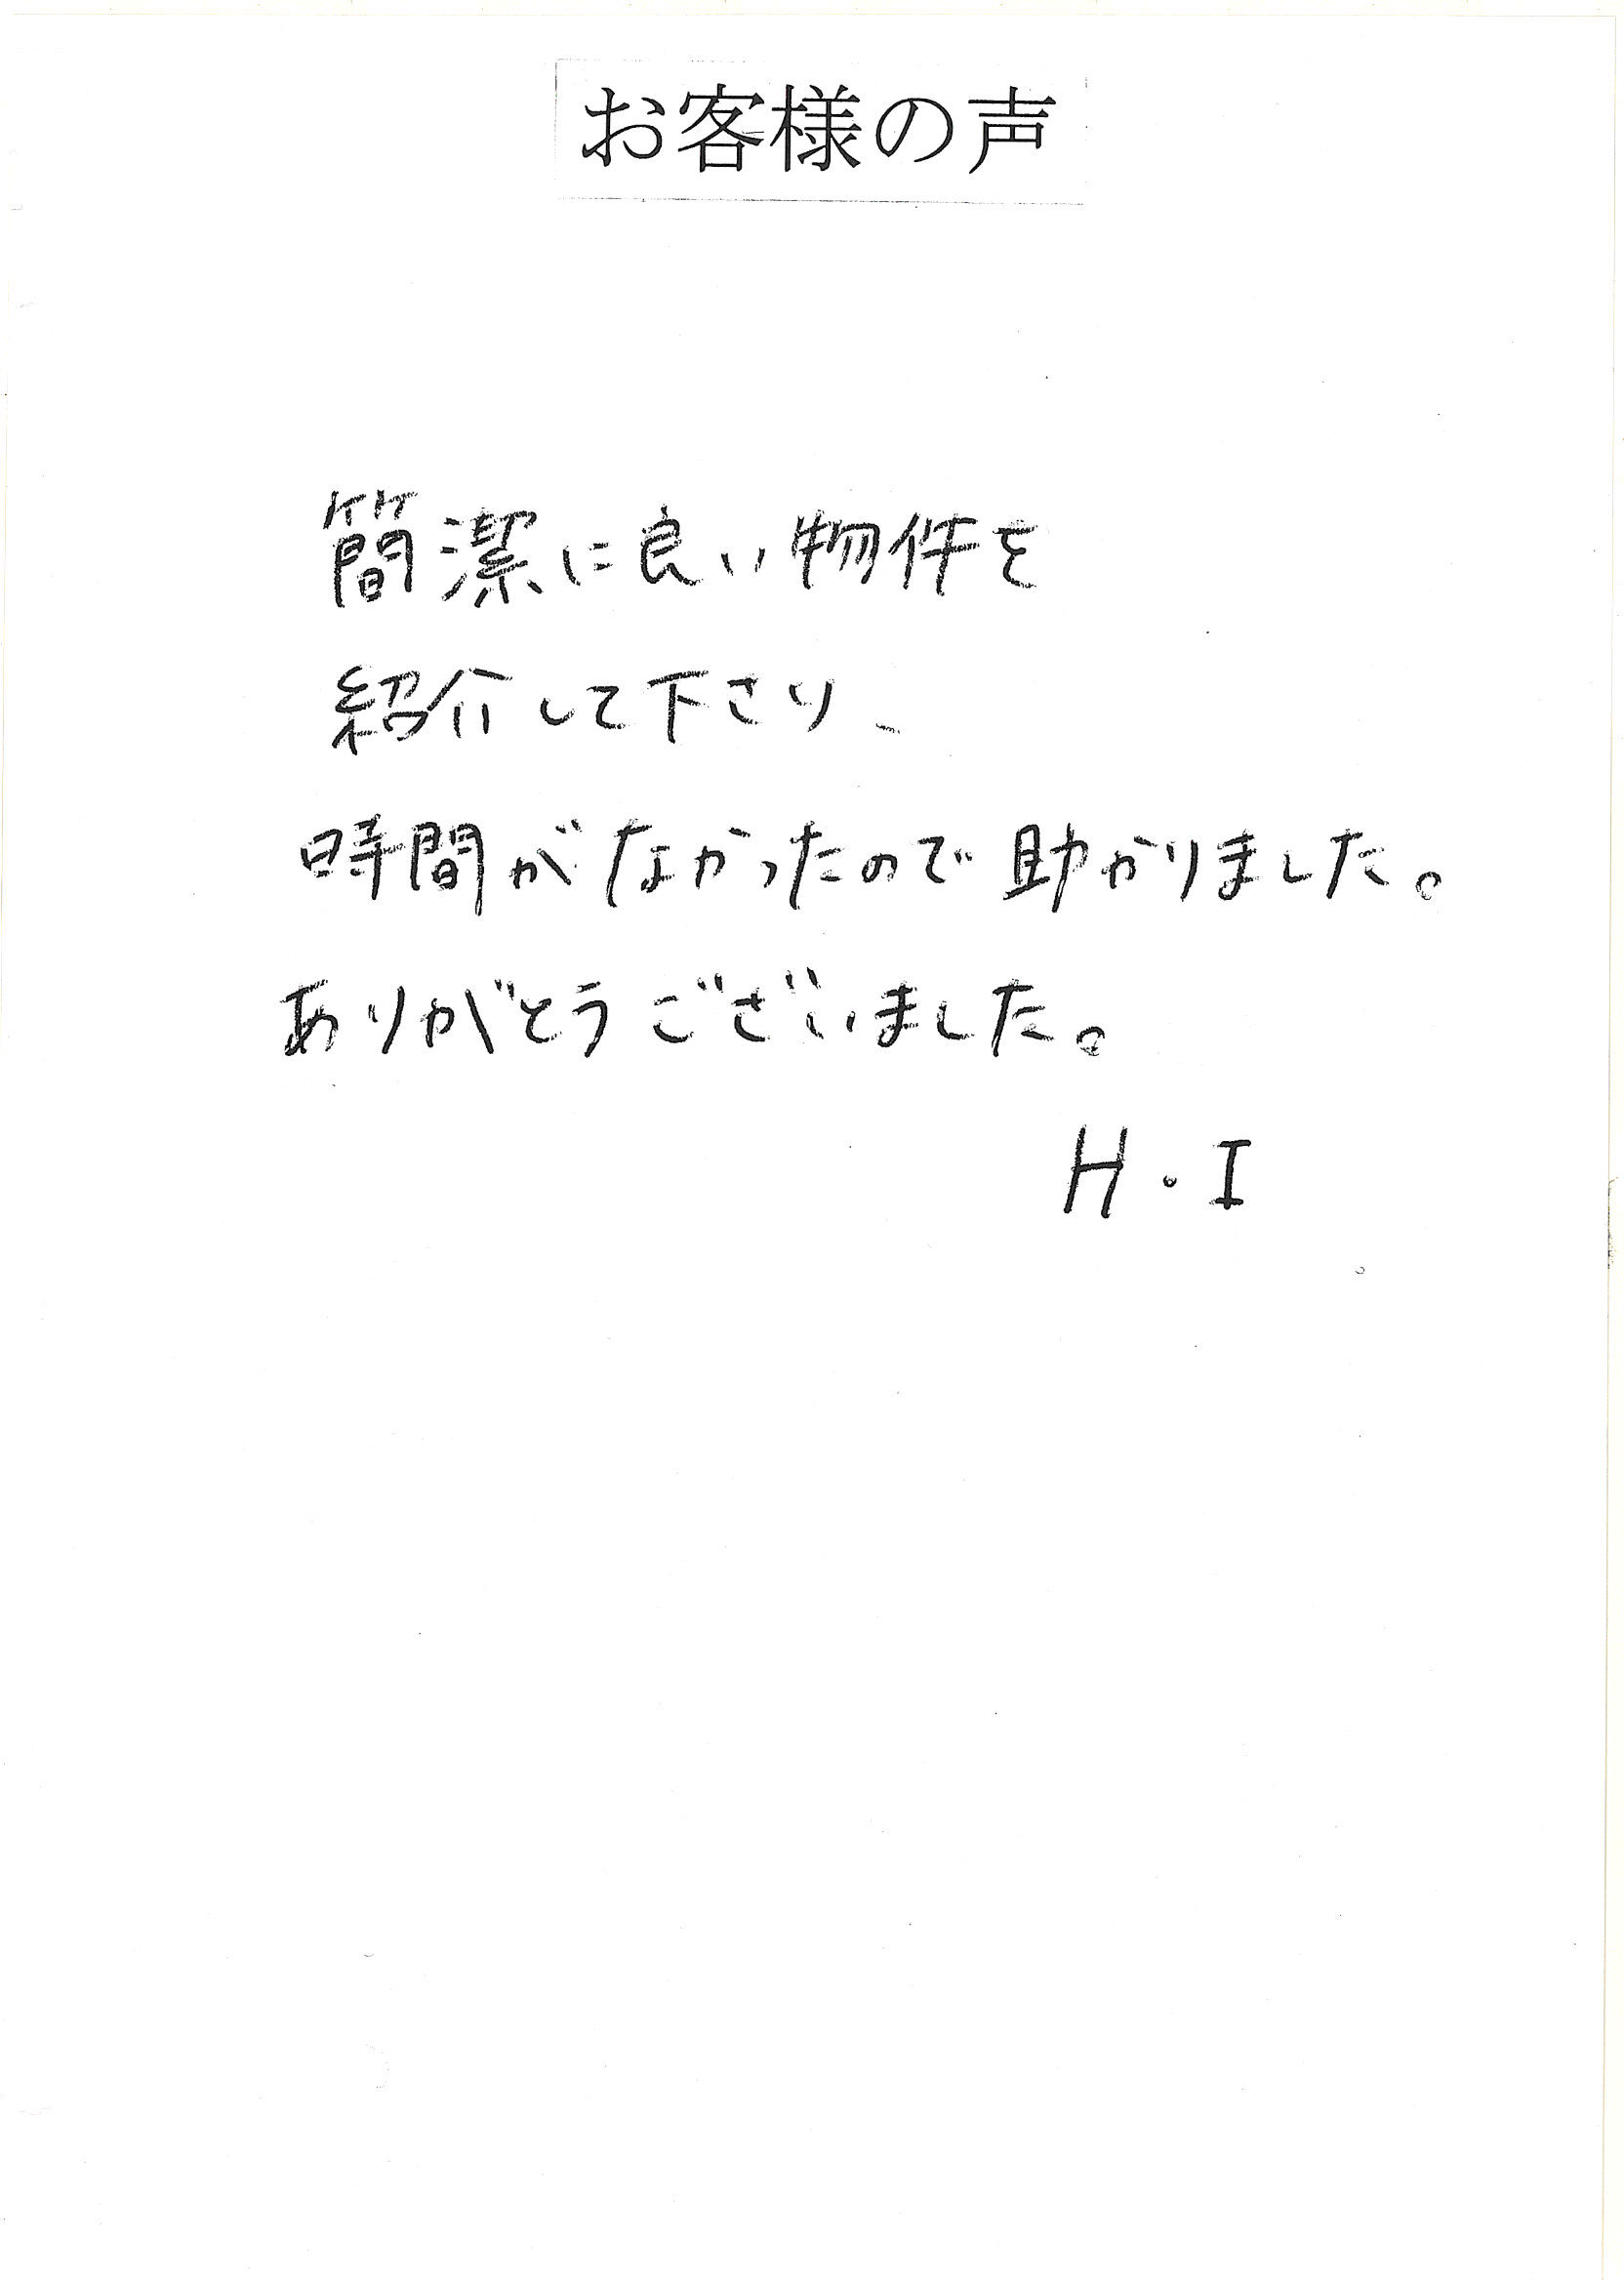 お客様の声
簡潔に良い物件を
紹介して下さり、
時間がなかったので助かりました。
ありがとうございました。
H・I